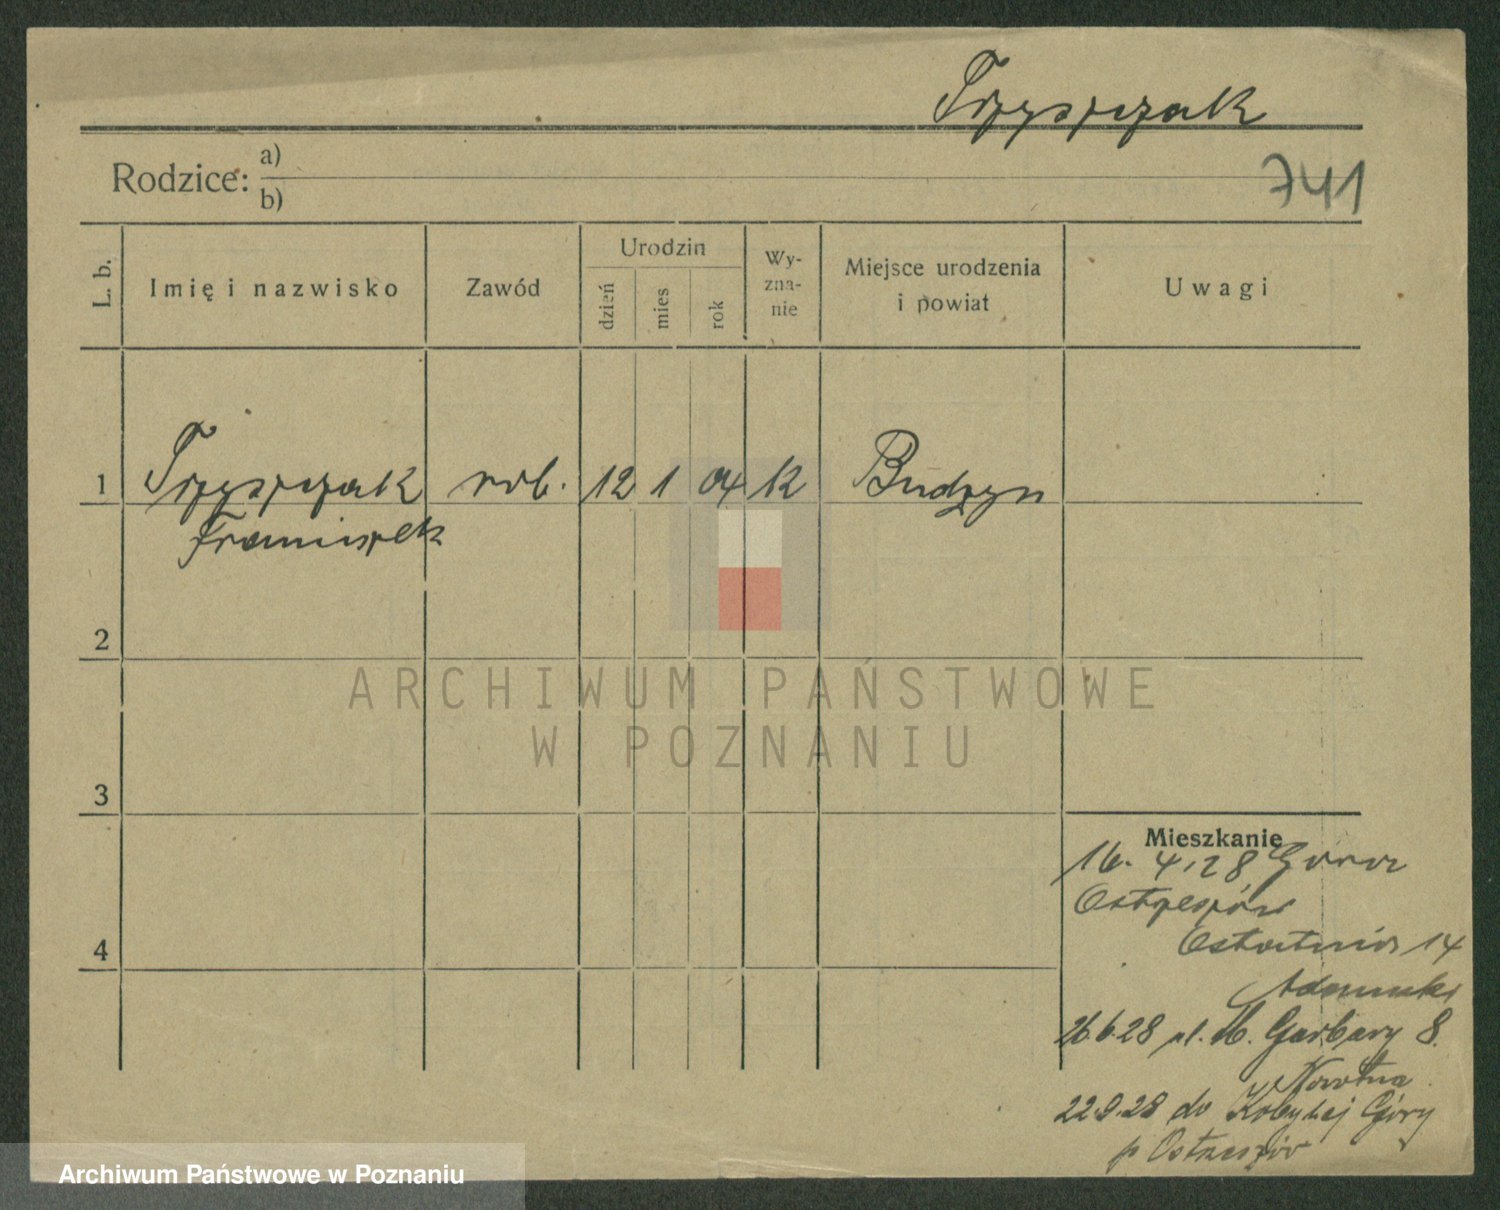 Trzyszczak
Rodzice: a)
b)
741
L. b.
Imię i nazwisko
Zawód
Urodzin
dzień
mies
rok
Wy-
zna-
nie
Miejsce urodzenia
i powiat
Uwagi
1 Trzyszczak rob. 12 1 04 k Budzyn
Franciszek
2
3
4
Mieszkanie
16. 4.28 Góra
Ostrzeszów
Ostatnia 14
Adamski
26.6.28 M. Garbary 8.
Nowotna
22.9.28 do Kobylej Góry
p Ostrzeszów
ARCHIWUM PAŃSTWOWE
W POZNANIU
Archiwum Państwowe w Poznaniu